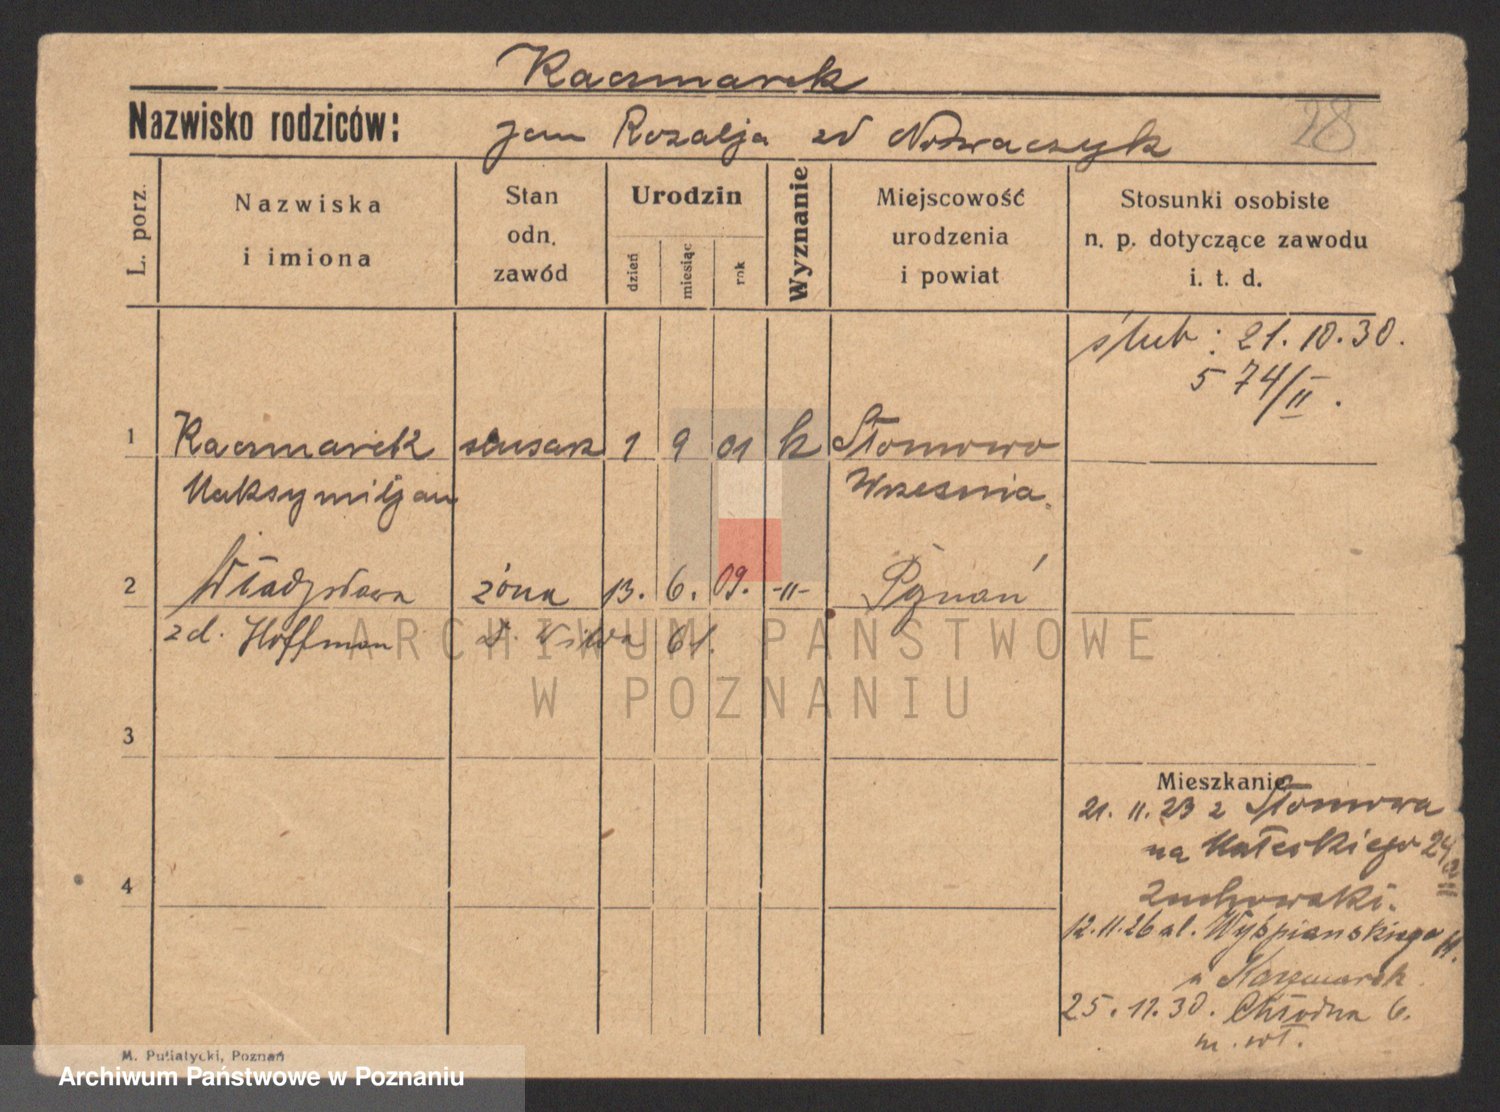 Kaczmarek
Nazwisko rodziców: Jan Rozalja zd Nowaczyk
28
L. porz.
Nazwiska
i imiona
Stan
odn.
zawód
Urodzin
dzień
miesiąc
rok
Wyznanie
Miejscowość
urodzenia
i powiat
Stosunki osobiste
n. p. dotyczące zawodu
i. t. d.
ślub: 21.10.30.
574/II.
1 Kaczmarek ślusarz 1 9 01 k Słomowo
Maksymiljan Września.
2 Władysława żona 13. 6. 09. -II- Poznań
zd. Hoffman 61.
3
4
Mieszkanie
21.11.23 z Słomowa
na Małeckiego 24
Żuchowski.
12.11.26 ul. Wyśpiańskiego
u Kaczmarek
25.11.30. Chłodna 6.
m. wł.
M. Putiatycki, Poznań
ARCHIWUM PAŃSTWOWE
W POZNANIU
Archiwum Państwowe w Poznaniu